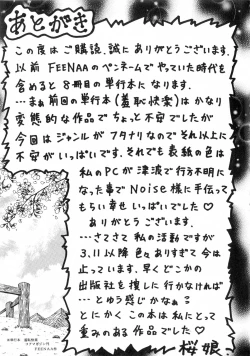 あとがき
この度はご購読、誠にありがとうございます。
以前FEENAAのペンネームでやっていた時代も
含めると8冊目の単行本になります。
…まぁ前回の単行本(羞恥快楽)はかなり
変態的な作品でちょっと不安でしたが
今回はジャンルがフタナリなのでそれ以上に
不安がいっぱいです。それでも表紙の色は
私のPCが津波で行方不明に
なった事でNoise様に手伝って
もらい幸せいっぱいでした♡
ありがとうございます。
…さてさて私の活動ですが
3.11以降色々ありすぎて今は
止っています。早くどこかの
出版社を捜しに行かなければ
…とゆう感じかなぁ?
とにかくこの本は私にとって
重みのある作品でした♡
桜娘